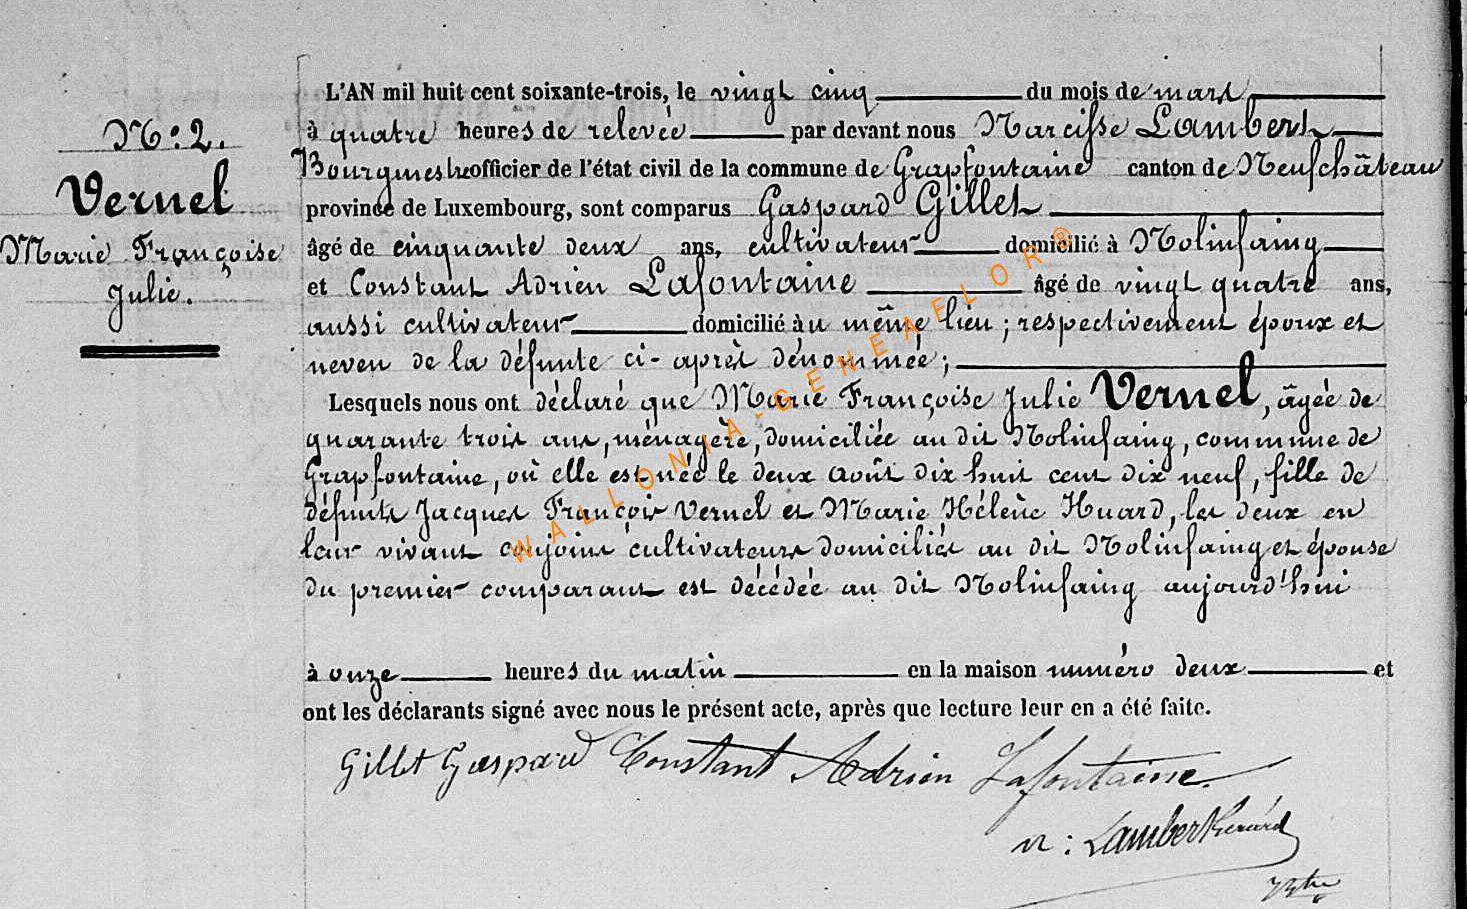 N°: 2.
Vernel
Marie Françoise
Julie.
L'AN mil huit cent soixante-trois, le vingt cinq du mois de mars
à quatre heures de relevée par devant nous Narcisse Lambert
Bourgmestre officier de l'état civil de la commune de Grapfontaine canton de Neufchâteau
province de Luxembourg, sont comparus Gaspard Gillet
âgé de cinquante deux ans, cultivateur domicilié à Nolinfaing
et Constant Adrien Lafontaine âgé de vingt quatre ans,
aussi cultivateur domicilié au même lieu ; respectivement époux et
neveu de la défunte ci-après dénommée ;
Lesquels nous ont déclaré que Marie Françoise Julie Vernel, âgée de
quarante trois ans, ménagère, domiciliée au dit Nolinfaing, commune de
Grapfontaine, où elle est née le deux Août dix huit cent dix neuf, fille de
défunts Jacques François Vernel et Marie Hélène Huard, les deux en
leur vivant conjoins cultivateurs domiciliés au dit Nolinfaing et épouse
du premier comparant est décédée au dit Nolinfaing aujourd'hui
à onze heures du matin en la maison numéro deux et
ont les déclarants signé avec nous le présent acte, après que lecture leur en a été faite.
Gillet Gaspard Constant Adrien Lafontaine
n : Lambert
WALLONIA-GENEAELOR®